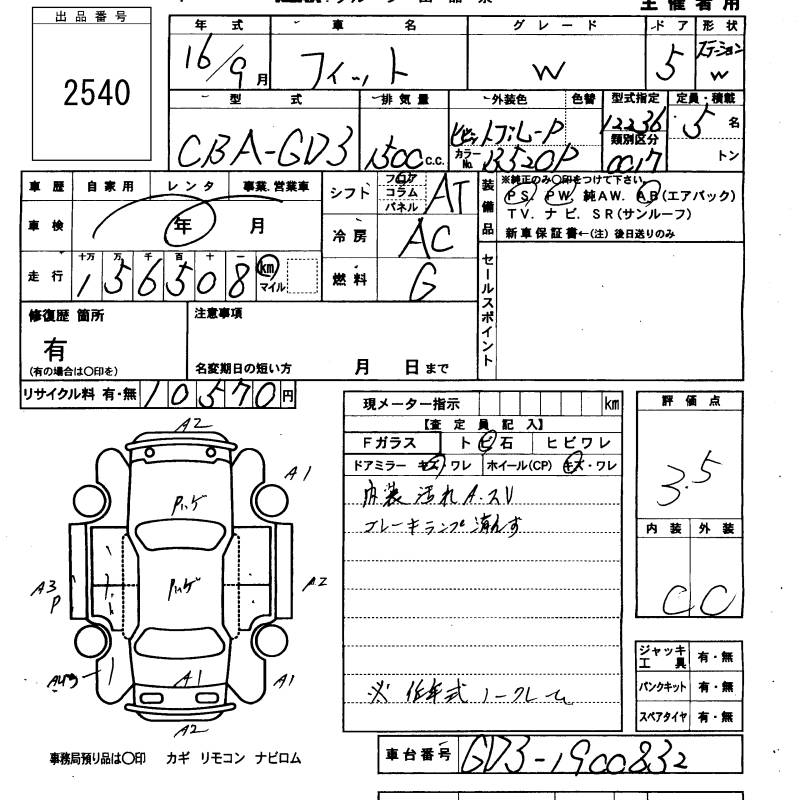 主催者用
出品番号
2540
年式 車名 グレード ドア 形状
16/9月 フィット W 5 ステーションW
型式 排気量 外装色 色替 型式指定 定員・積載
CBA-GD3 1500c.c. カラーNo. B520P 12236 5名
類別区分
0017 トン
車歴 自家用 レンタ 事業.営業車
車検 年 月
走行 十万 万 千 百 十 一
156508 km マイル
シフト フロア コラム パネル AT
冷房 AC
燃料 G
装備品
※純正のみ○印をつけて下さい
PS. PW. 純AW. AB(エアバック)
TV. ナビ. SR(サンルーフ)
新車保証書←(注)後日送りのみ
セールスポイント
修復歴 箇所
有
(有の場合は○印を)
注意事項
名変期日の短い方 月 日まで
リサイクル料 有・無 10570円
現メーター指示 km
【査定員記入】
Fガラス トビ石 ヒビワレ
ドアミラー キズ・ワレ ホイール(CP) キズ・ワレ
内装 汚れ A.スレ
ブレーキランプ 消えず
※ 低年式 ノークレーム
評価点
3.5
内装 外装
C C
ジャッキ工具 有・無
パンクキット 有・無
スペアタイヤ 有・無
A2
A1
ハゲ
A3
P
ハゲ
A2
A1
A1
A2
事務局預り品は○印 カギ リモコン ナビロム
車台番号 GD3-1900832